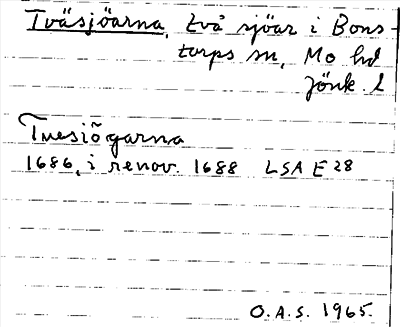 Tväsjöarna, två sjöar i Bons-
torps sn, Mo hd
Jönk. l
Tuesiögarna
1686, i renov. 1688 LSA E 28
O.A.S. 1965.